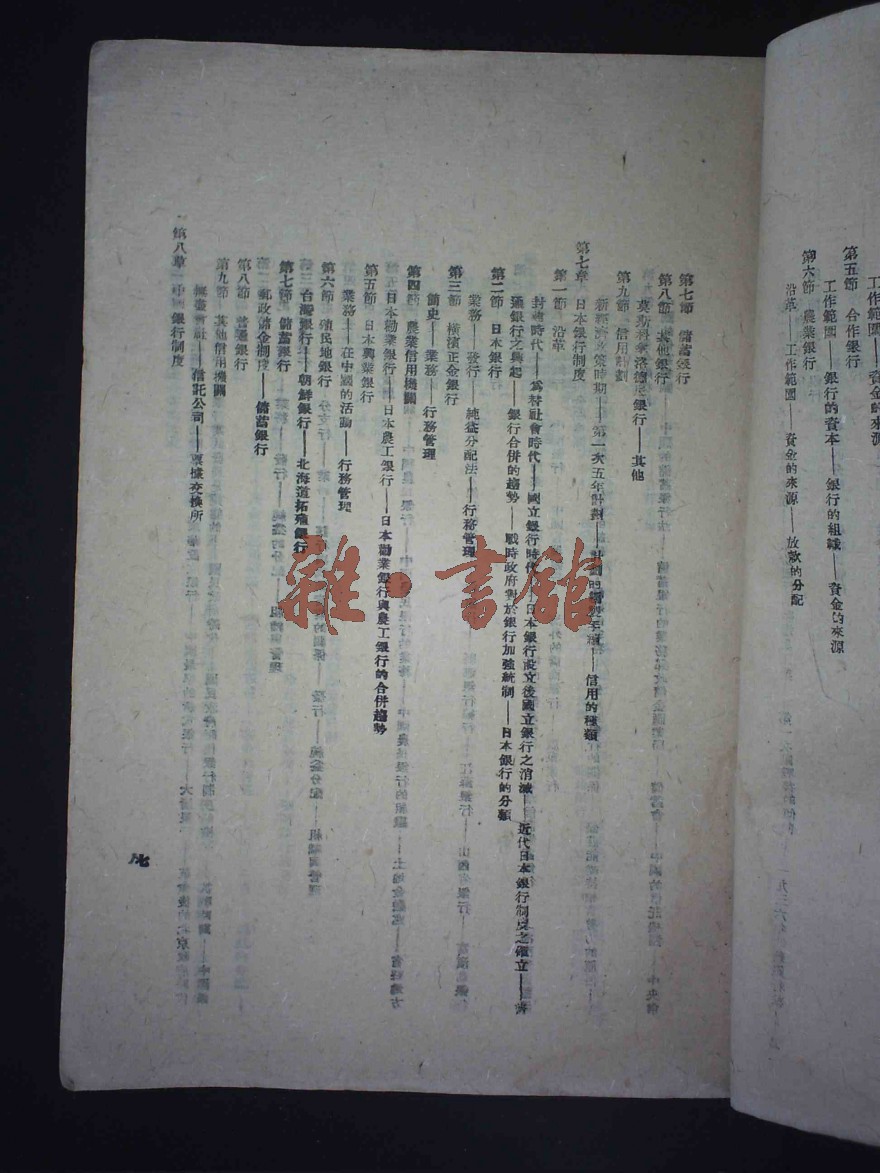 工作範圍——資金的來源
第五節 合作銀行
工作範圍——銀行的資本——銀行的組織——資金的來源
第六節 農業銀行
沿革——工作範圍——資金的來源——放款的分配
第七節 儲蓄銀行
第八節 其他銀行
銀行——其他
第九節 信用計劃
時期——第一次五年計劃——信用的種類
第七章 日本銀行制度
第一節 沿革
封建時代——為替社會時代——國立銀行時代——日本銀行設立後國立銀行之消滅——近代日本銀行制度之確立——普
通銀行之興起——銀行合併的趨勢——戰時政府對於銀行加強統制——日本銀行的分類
第二節 日本銀行
業務——發行——純益分配法——行務管理
第三節 橫濱正金銀行
簡史——業務——行務管理
第四節 農業信用機關
日本勸業銀行——日本農工銀行——日本勸業銀行與農工銀行的合併趨勢
第五節 日本興業銀行
業務——在中國的活動——行務管理
第六節 殖民地銀行
台灣銀行——朝鮮銀行——北海道拓殖銀行
第七節 儲蓄銀行
郵政儲金制度——儲蓄銀行
第八節 普通銀行
第九節 其他信用機關
信託公司——票據交換所
第八章 中國銀行制度
雜·書館